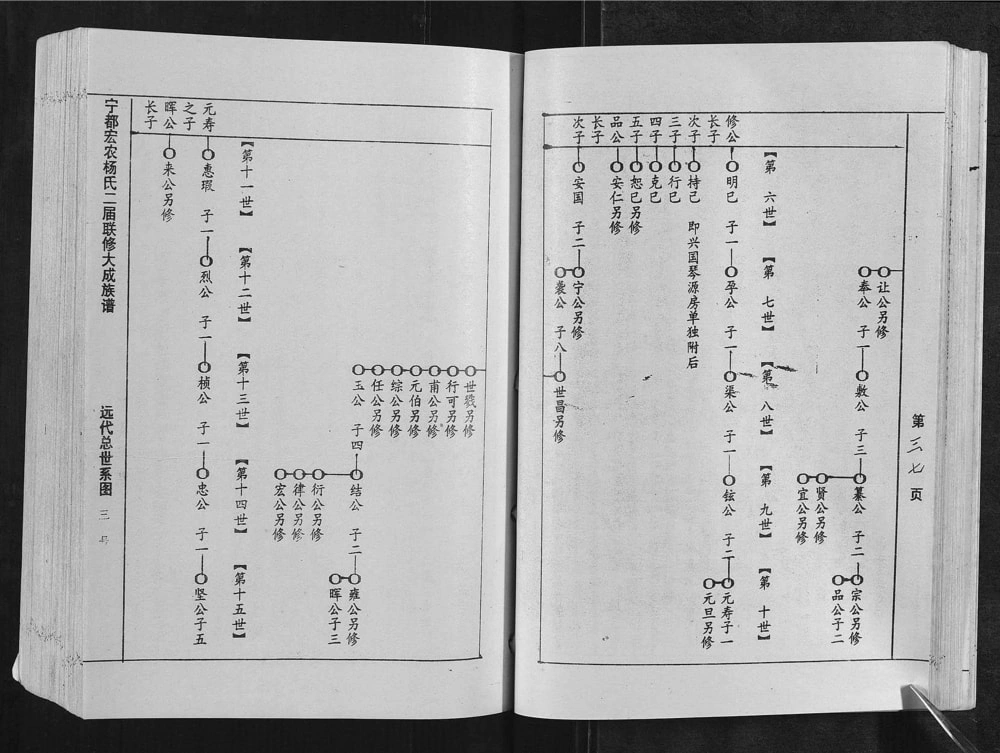 第三七页
让公另修
奉公 子一
敷公 子三
纂公 子二
贤公另修
宜公另修
宗公另修
品公子二
【第六世】 【第七世】 【第八世】 【第九世】 【第十世】
修公长子
明已 子一
孕公 子一
渠公 子一
铉公 子二
元寿子一
元旦另修
次子
持已 即兴国琴源房单独附后
三子
行已
四子
克已
五子
恕已另修
品公长子
安仁另修
次子
安国 子二
宁公另修
袭公 子八
世昌另修
世戣另修
行可另修
甫公另修
元伯另修
综公另修
任公另修
玉公 子四
结公 子二
衍公另修
律公另修
宏公另修
雍公另修
晖公子三
【第十一世】 【第十二世】 【第十三世】 【第十四世】 【第十五世】
元寿之子
惠瑕 子一
烈公 子一
桢公 子一
忠公 子一
坚公子五
晖公长子
来公另修
宁都宏农杨氏二届联修大成族谱
远代总世系图
三号